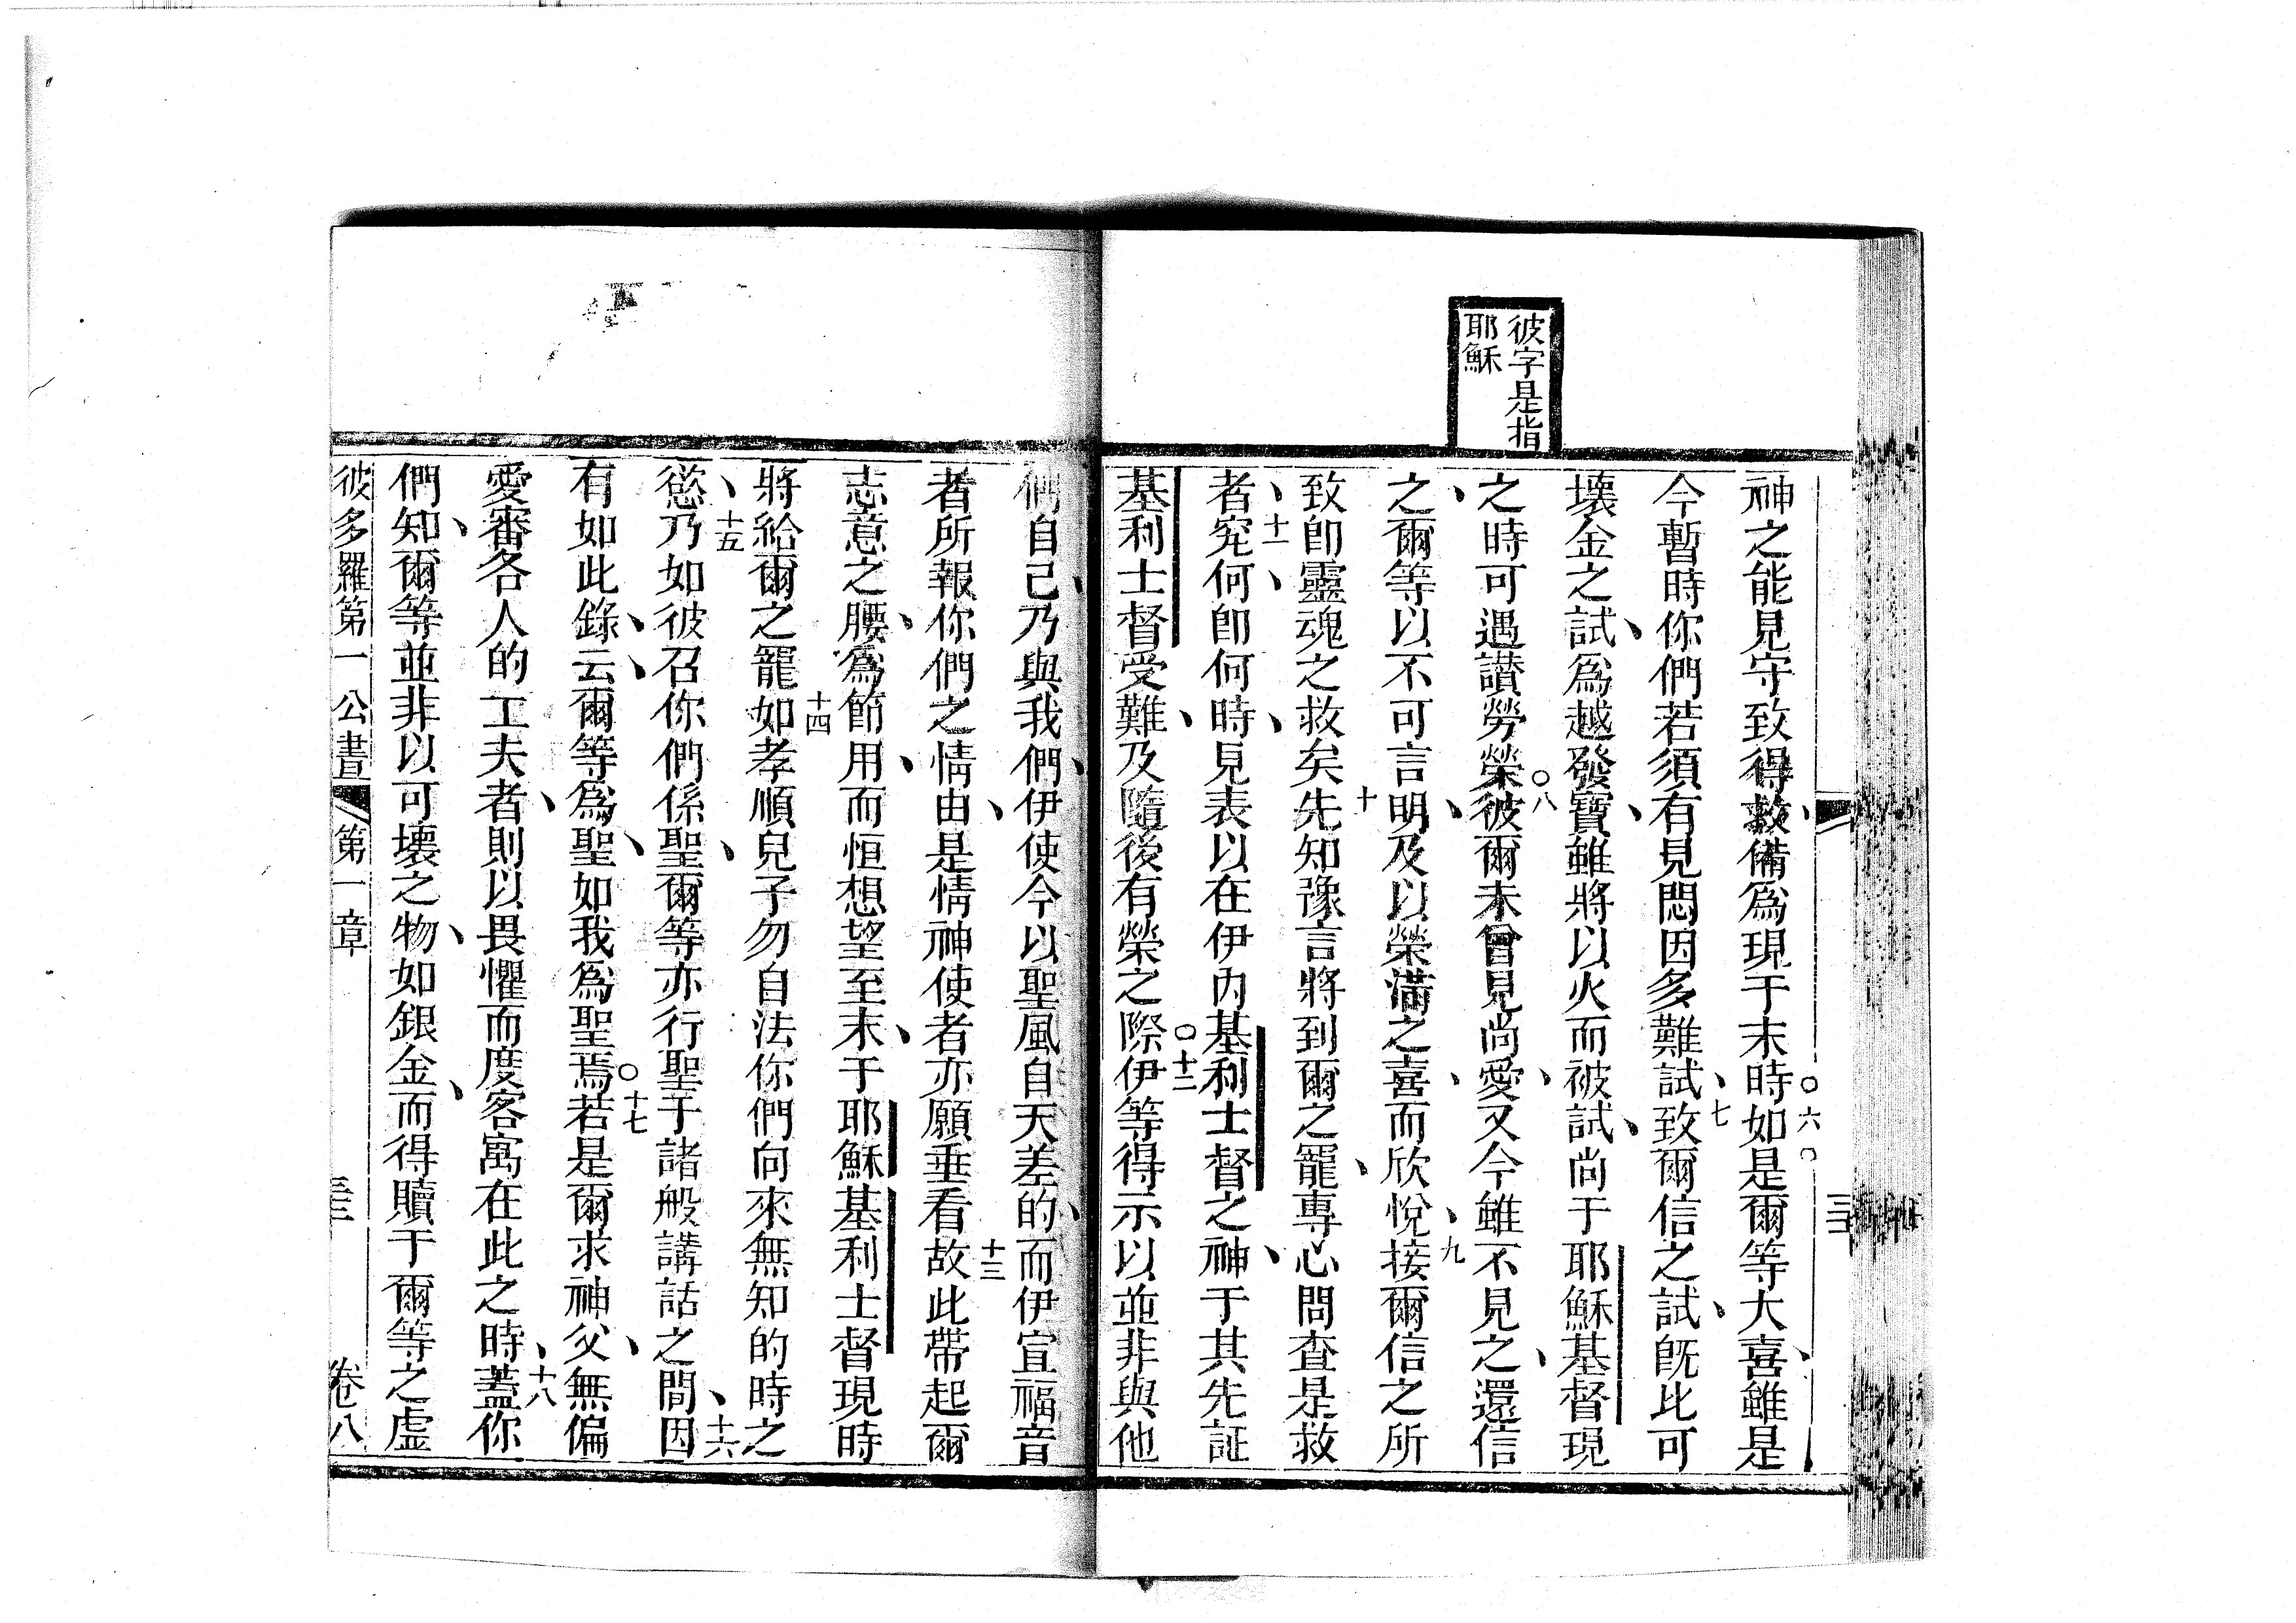 彼字是指
耶穌
神之能見守致得救備爲現于末時如是爾等大喜雖是
六
今暫時你們若須有見悶因多難試致爾信之試旣比可
七
壞金之試爲越發寶雖將以火而被試尚于耶穌基督現
之時可遇讃勞榮彼爾未曾見尚愛又今雖不見之還信
八
之爾等以不可言明及以榮滿之喜而欣悅接爾信之所
九
致卽靈魂之救矣先知豫言將到爾之寵專心問查是救
十
者究何卽何時見表以在伊內基利士督之神于其先証
十一
基利士督受難及隨後有榮之際伊等得示以並非與他
十二
們自己乃與我們伊使今以聖風自天差的而伊宣福音
者所報你們之情由是情神使者亦願垂看故此帶起爾
十三
志意之腰爲節用而恒想望至末于耶穌基利士督現時
將給爾之寵如孝順兒子勿自法你們向來無知的時之
十四
慾乃如彼召你們係聖爾等亦行聖于諸般講話之間因
十五
十六
有如此錄云爾等爲聖如我爲聖焉若是爾求神父無偏
十七
愛審各人的工夫者則以畏懼而度客寓在此之時蓋你
十八
們知爾等並非以可壞之物如銀金而得贖于爾等之虛
彼多羅第一公書 第一章 卷八